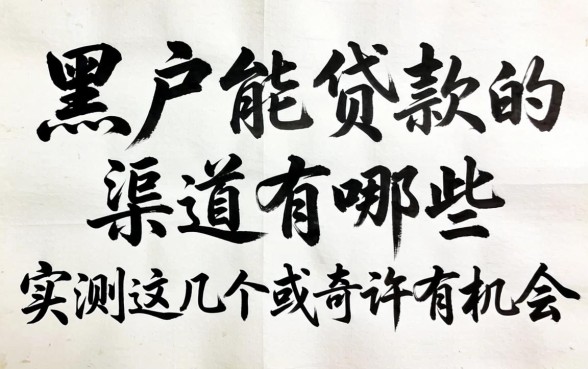 黑户能贷款的
渠道有哪些
实测这几个或奇许有机会